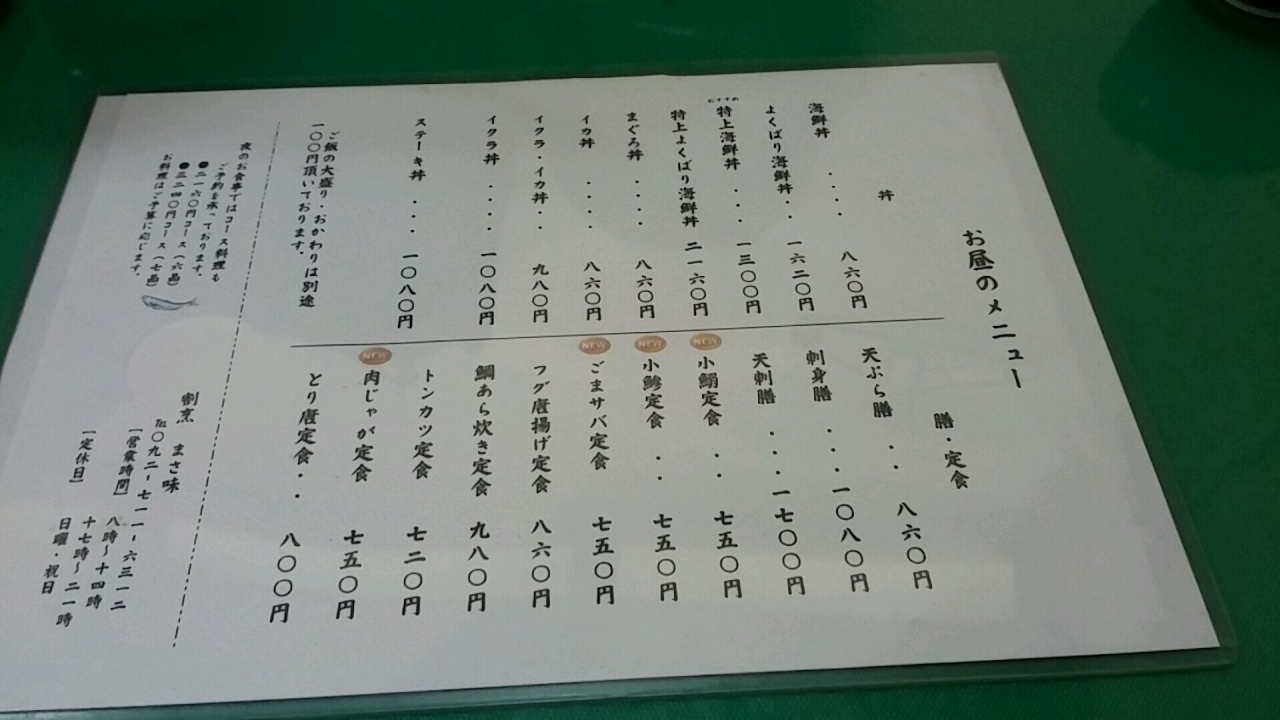 お昼のメニュー
丼
海鮮丼 ・・・・ 八六〇円
よくばり海鮮丼・・ 一六二〇円
おすすめ
特上海鮮丼 ・・・ 一三〇〇円
特上よくばり海鮮丼 二一六〇円
まぐろ丼 ・・・・ 八六〇円
イカ丼 ・・・・ 八六〇円
イクラ・イカ丼・・ 九八〇円
イクラ丼 ・・・・ 一〇八〇円
ステーキ丼 ・・・ 一〇八〇円
ご飯の大盛り・おかわりは別途
一〇〇円頂いております。
膳・定食
天ぷら膳 ・・ 八六〇円
刺身膳 ・・・ 一〇八〇円
天刺膳 ・・・ 一七〇〇円
NEW
小鰯定食 ・・ 七五〇円
NEW
小鯵定食 ・・ 七五〇円
NEW
ごまサバ定食 七五〇円
フグ唐揚げ定食 八六〇円
鯛あら炊き定食 九八〇円
トンカツ定食 七二〇円
NEW
肉じゃが定食 七五〇円
とり唐定食・・ 八〇〇円
夜のお食事ではコース料理も
ご予約を承っております。
●二一六〇円コース（六品）
●三二四〇円コース（七品）
お料理はご予算に応じます。
割烹 まさ味
℡〇九二ー七一一ー六三一二
［営業時間］ 八時～十四時
十七時～二一時
［定休日］ 日曜・祝日